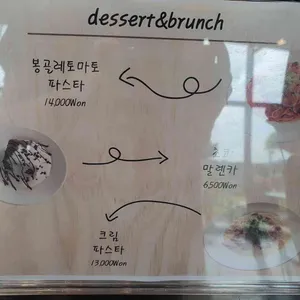 dessert&brunch
봉골레토마토
파스타
14,000Won
말렌카
6,500Won
크림
파스타
13,000Won